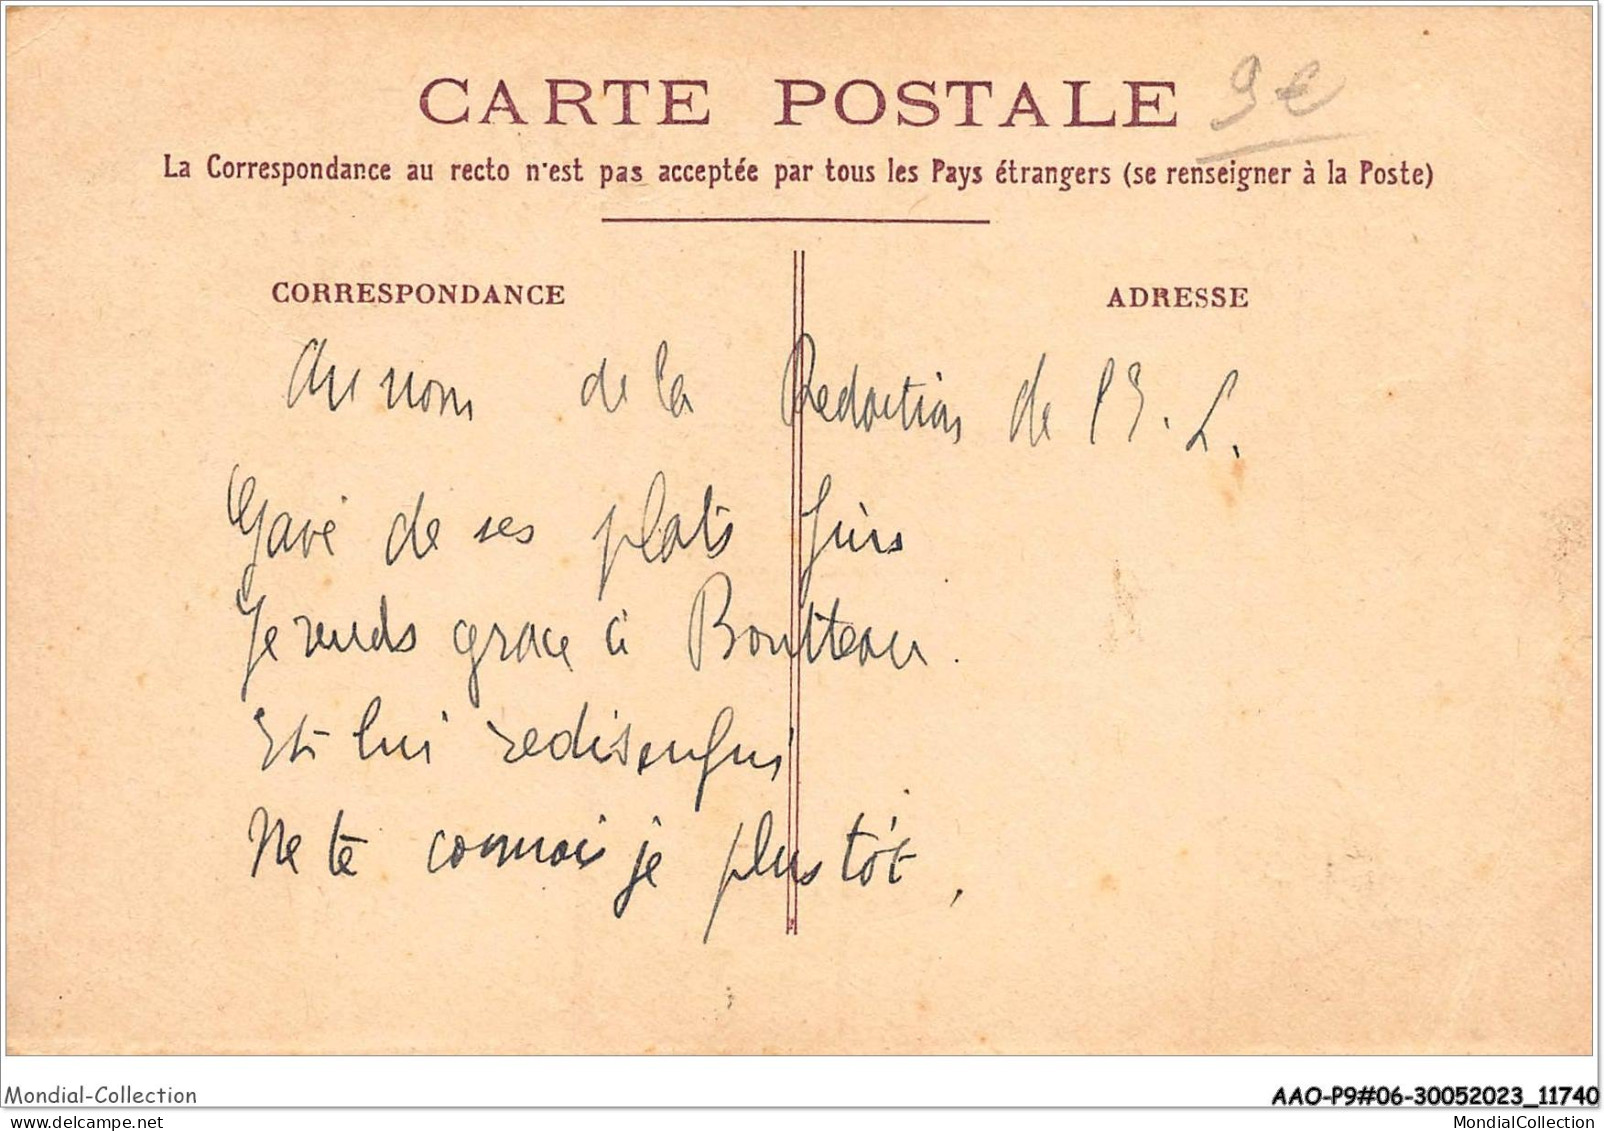 CARTE POSTALE 9€
La Correspondance au recto n'est pas acceptée par tous les Pays étrangers (se renseigner à la Poste)
CORRESPONDANCE
ADRESSE
Au nom de la Redaction de l'E. L.
Gavé de ses plats fins
Je rends grace à Boutteau.
Et lui redis enfin
Ne te connais je plus tôt,
Mondial-Collection
AAO-P9#06-30052023_11740
mondialcollection
MondialCollection